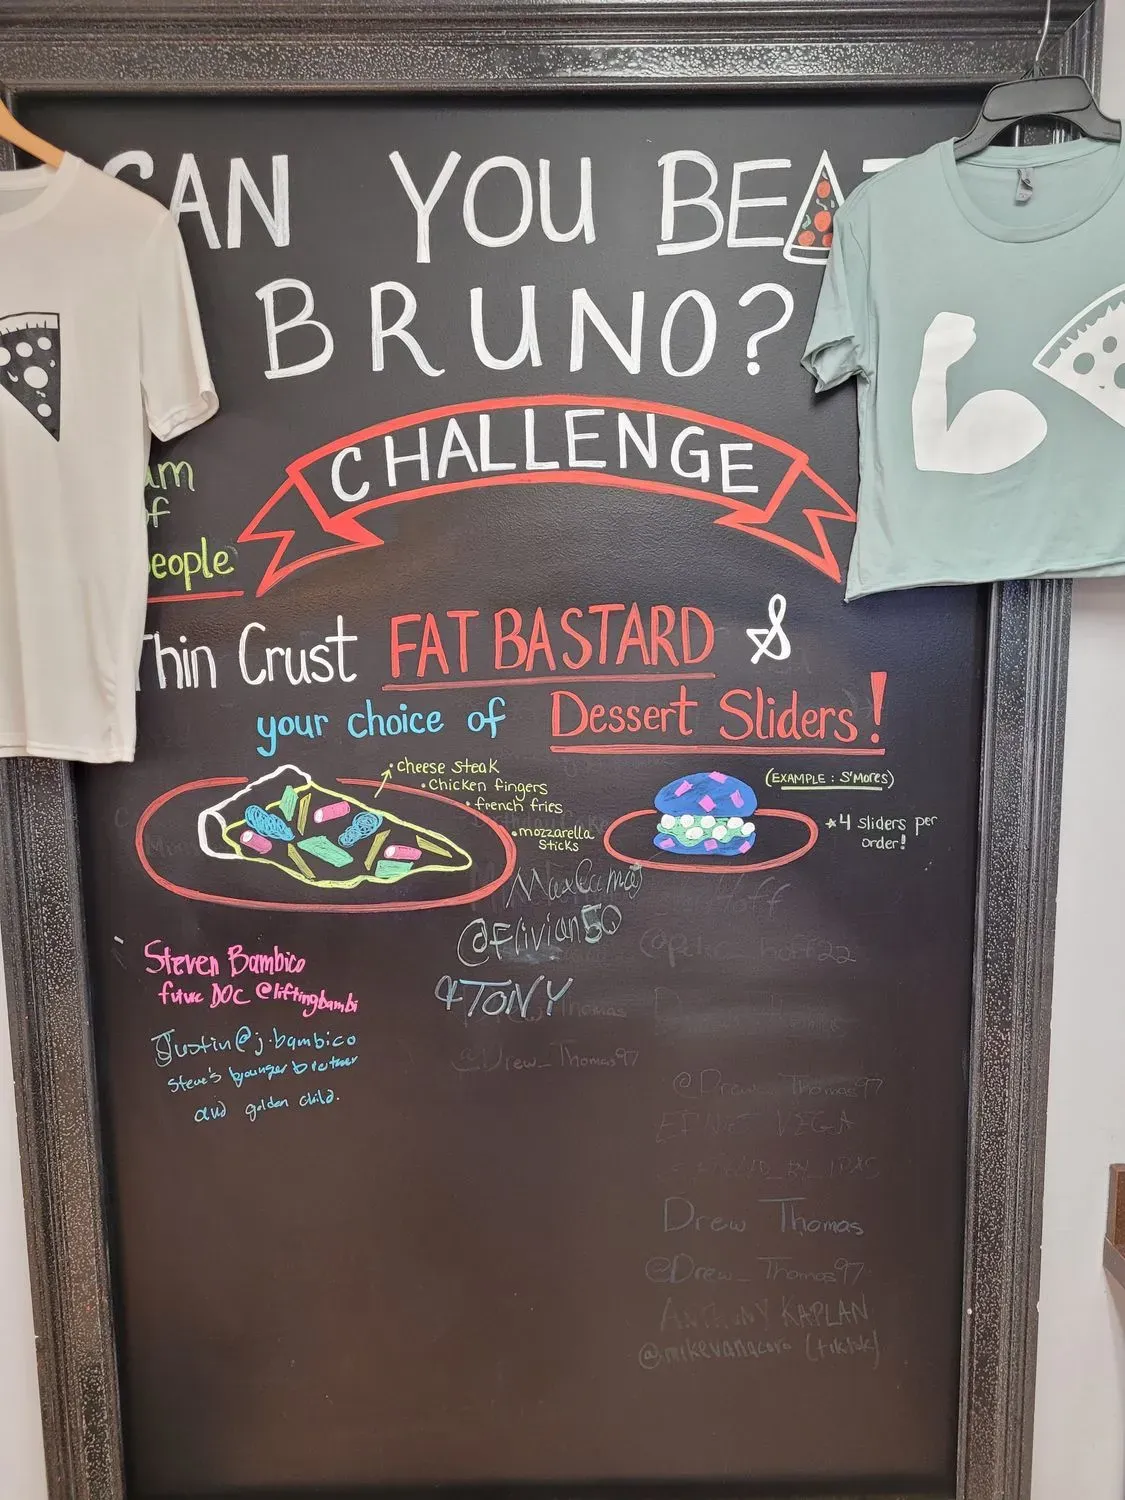 CAN YOU BEAT
BRUNO?
CHALLENGE
am
of
people
Thin Crust FAT BASTARD &
your choice of Dessert Sliders!
• cheese steak
• chicken fingers
• french fries
• mozzarella
sticks
(EXAMPLE: S'MORES)
* 4 sliders per
order!
@Flivian50
& TONY
Steven Bambico
future DOC @liftingbambi
Justin @j.bambico
Steve's younger brother
and golden child.
Thomas
@Drew_Thomas97
@Drew_Thomas97
VEGA
Drew Thomas
@Drew_Thomas97
ANTHONY KAPLAN
@mikevanacoro (tiktok)